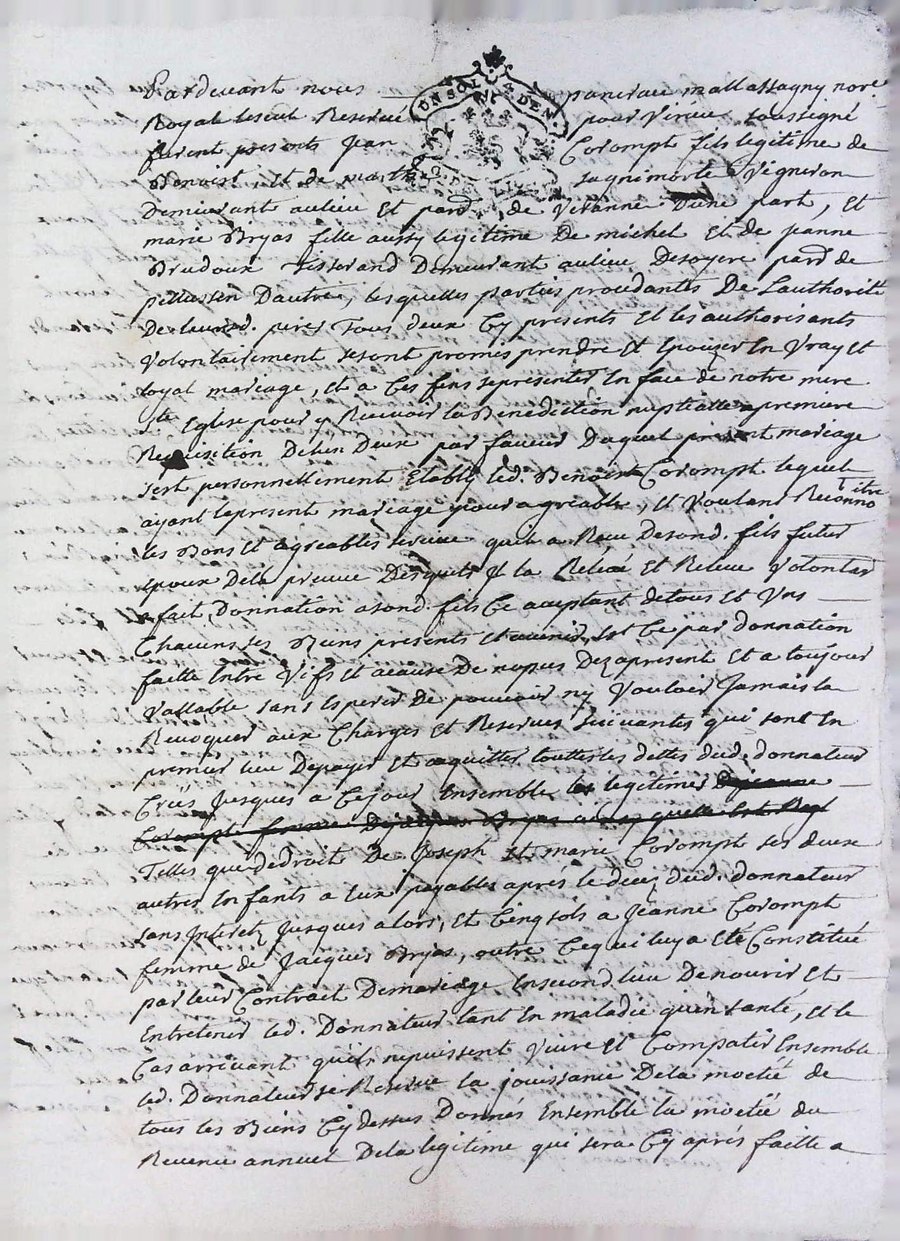 Pardevant nous pancrace mallassagny nore
Royal le seul Reservé pour Virieu soussigné
furent presents Jean Corompt fils legitime de
Benoist et de marthe sagnimorte Vigneron
Demeurant au lieu et parr. de Veranne d'une part, et
marie Bryas fille aussy legitime De michel et de jeanne
Brudoux Tisserand Demeurant au lieu Desoyere parr de
pellussin Dautre, les quelles parties procedantes De Lauthorité
De leursd. peres Tous deux Cy presents Et les authorisants
Volontairement se sont promis prendre Et Epouser En Vray et
loyal mariage, et a Ces fins se presenter En face de notre mere
Ste Eglise pour y Recevoir la Benediction nuptialle a premiere
Requisition Delun Deux par faveur Duquel present mariage
sest personnellement Etably led. Benoist Corompt lequel
ayant le present mariage pour agreable, et Voulant Reconnoitre
les Bons et agreables services quil a Receu Desond. fils futur
Epoux Dela preuve Desquels Il la Relevé Et Releve Volontair
a fait Donnation a sond. fils Ce aceptant de tous et Uns
Chacuns ses Biens presents et avenir, Est Ce par donnation
faitte Entre Vifs et acause de nopces Dez apresent Et a toujour
Vallable sans Esperer De pouvoir ny Vouloir Jamais la
Revoquer aux Charges Et Reserves suivantes qui sont En
premier lieu Depayer Et acquitter touttes les dettes dud. donnateur
Créés Jusques a Cejour Ensemble les legitimes De jeanne
Corompt femme De jacques Bryas
Telles que dedroit De Joseph Et marie Corompt ses deux
autres Enfants a Eux payables aprés le decez dud. donnateur
sans Interetz Jusques alors, et Cinq sols a Jeanne Corompt
femme de Jacques Bryas, outre Cequi luy a Eté Constitué
par leur Contract Demariage En second lieu Denourir Et
Entretenir led. Donnateur tant En maladie quen santé, et le
Cas arrivant quils nepuissent Vivre Et Compatir Ensemble
led. Donnateur se Reserve la jouissance Dela moetié de
tous les Biens Cy dessus Donnés Ensemble la moetié du
Revenu annuel Dela legitime qui sera Cy aprés faitte a